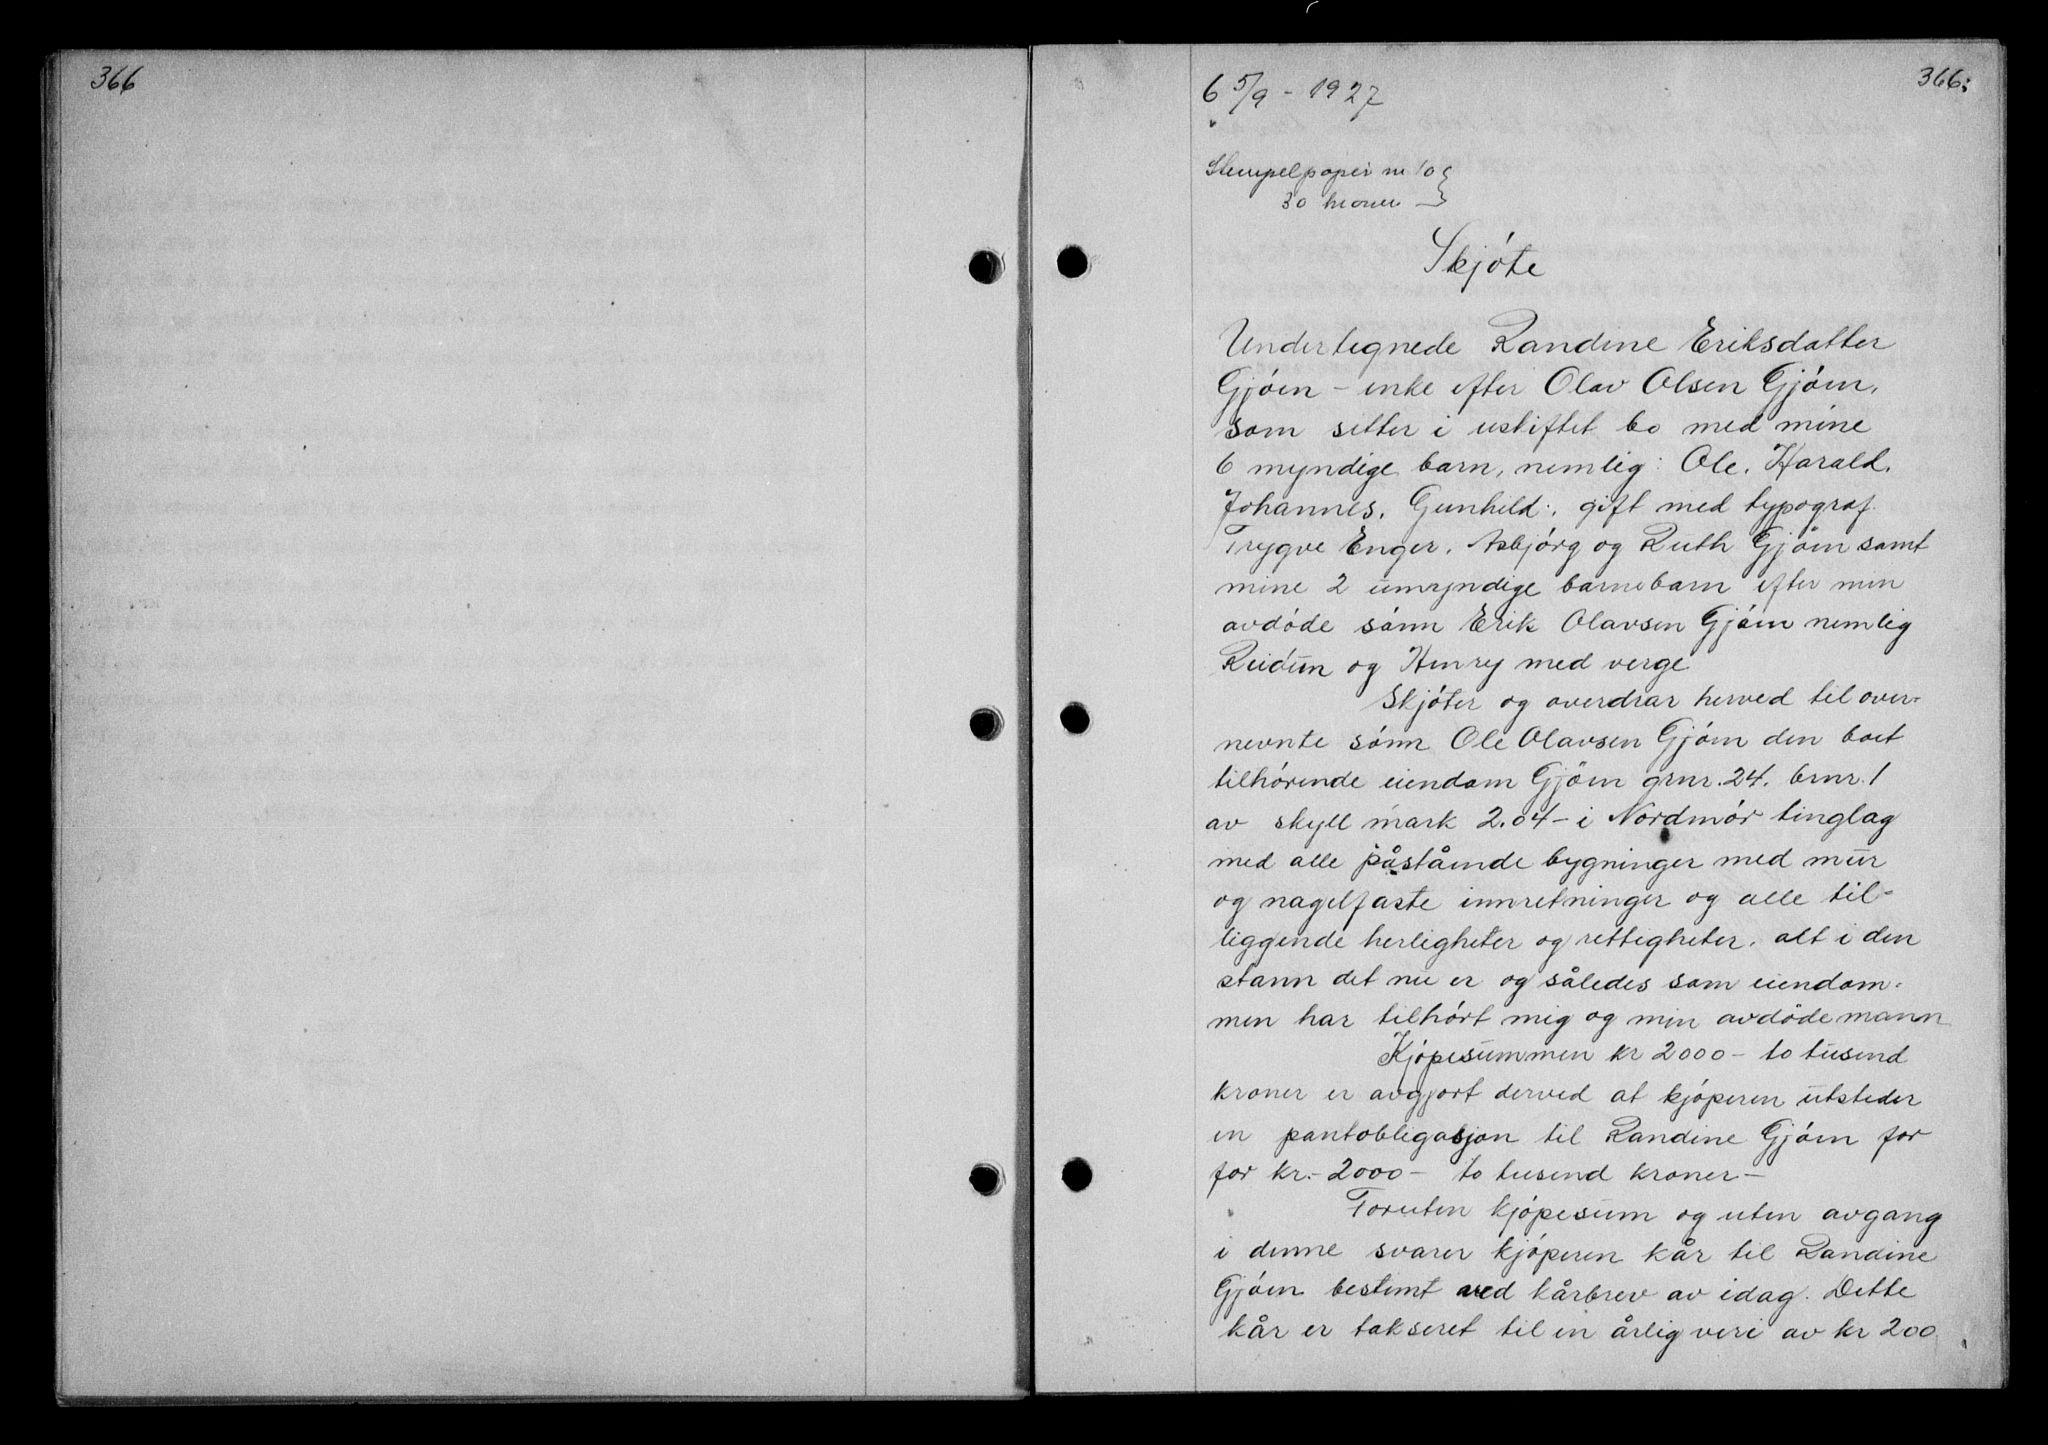 366
366:
6 5/9 - 1927
Stempelpapir nr 10
30 kroner
Skjóte
Undertegnede Randine Eriksdatter
Gjóen - enke efter Olav Olsen Gjóen,
som sitter i uskiftet bo med mine
6 myndige barn, nemlig: Ole. Harald.
Johannes. Gunhild:, gift med typograf
Trygve Enger. Asbjórg og Ruth Gjöen samt
mine 2 umyndige barnebarn efter min
avdóde sónn Erik Olavsen Gjóen nemlig
Reidun og Henry med verge
Skjóter og overdrar herved til over-
nevnte sónn Ole Olavsen Gjóen den boet
tilhórende eiendom Gjöen grnr. 24. brnr. 1
av skyll mark 2.04 - i Nordmór tinglag
med alle påstående bygninger med mur
og nagelfaste innretninger og alle til-
liggende herligheter og rettigheter. alt i den
stann det nu er og således som eiendom-
men har tilhórt mig og min avdöde mann
Kjópesummen kr 2000 - to tusend
kroner er avgjort derved at kjóperen utsteder
en pantobligasjon til Randine Gjóen for
for kr. - 2000 - to tusend kroner -
Foruten kjópesum og uten avgang
i denne svarer kjóperen kår til Randine
Gjóen bestemt ved kårbrev av idag. Dette
kår er takseret til en årlig veri av kr 200